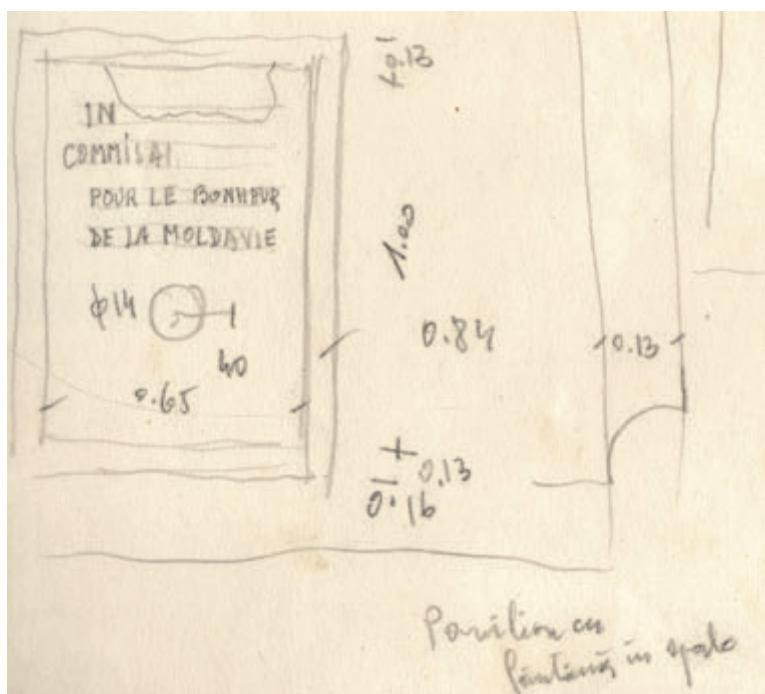 IN
COMMISAI
POUR LE BONHEUR
DE LA MOLDAVIE
ϕ14
40
0.65
0.13
1.00
0.84
0.13
0.13
0.16
Pavilion cu
fântână în spate